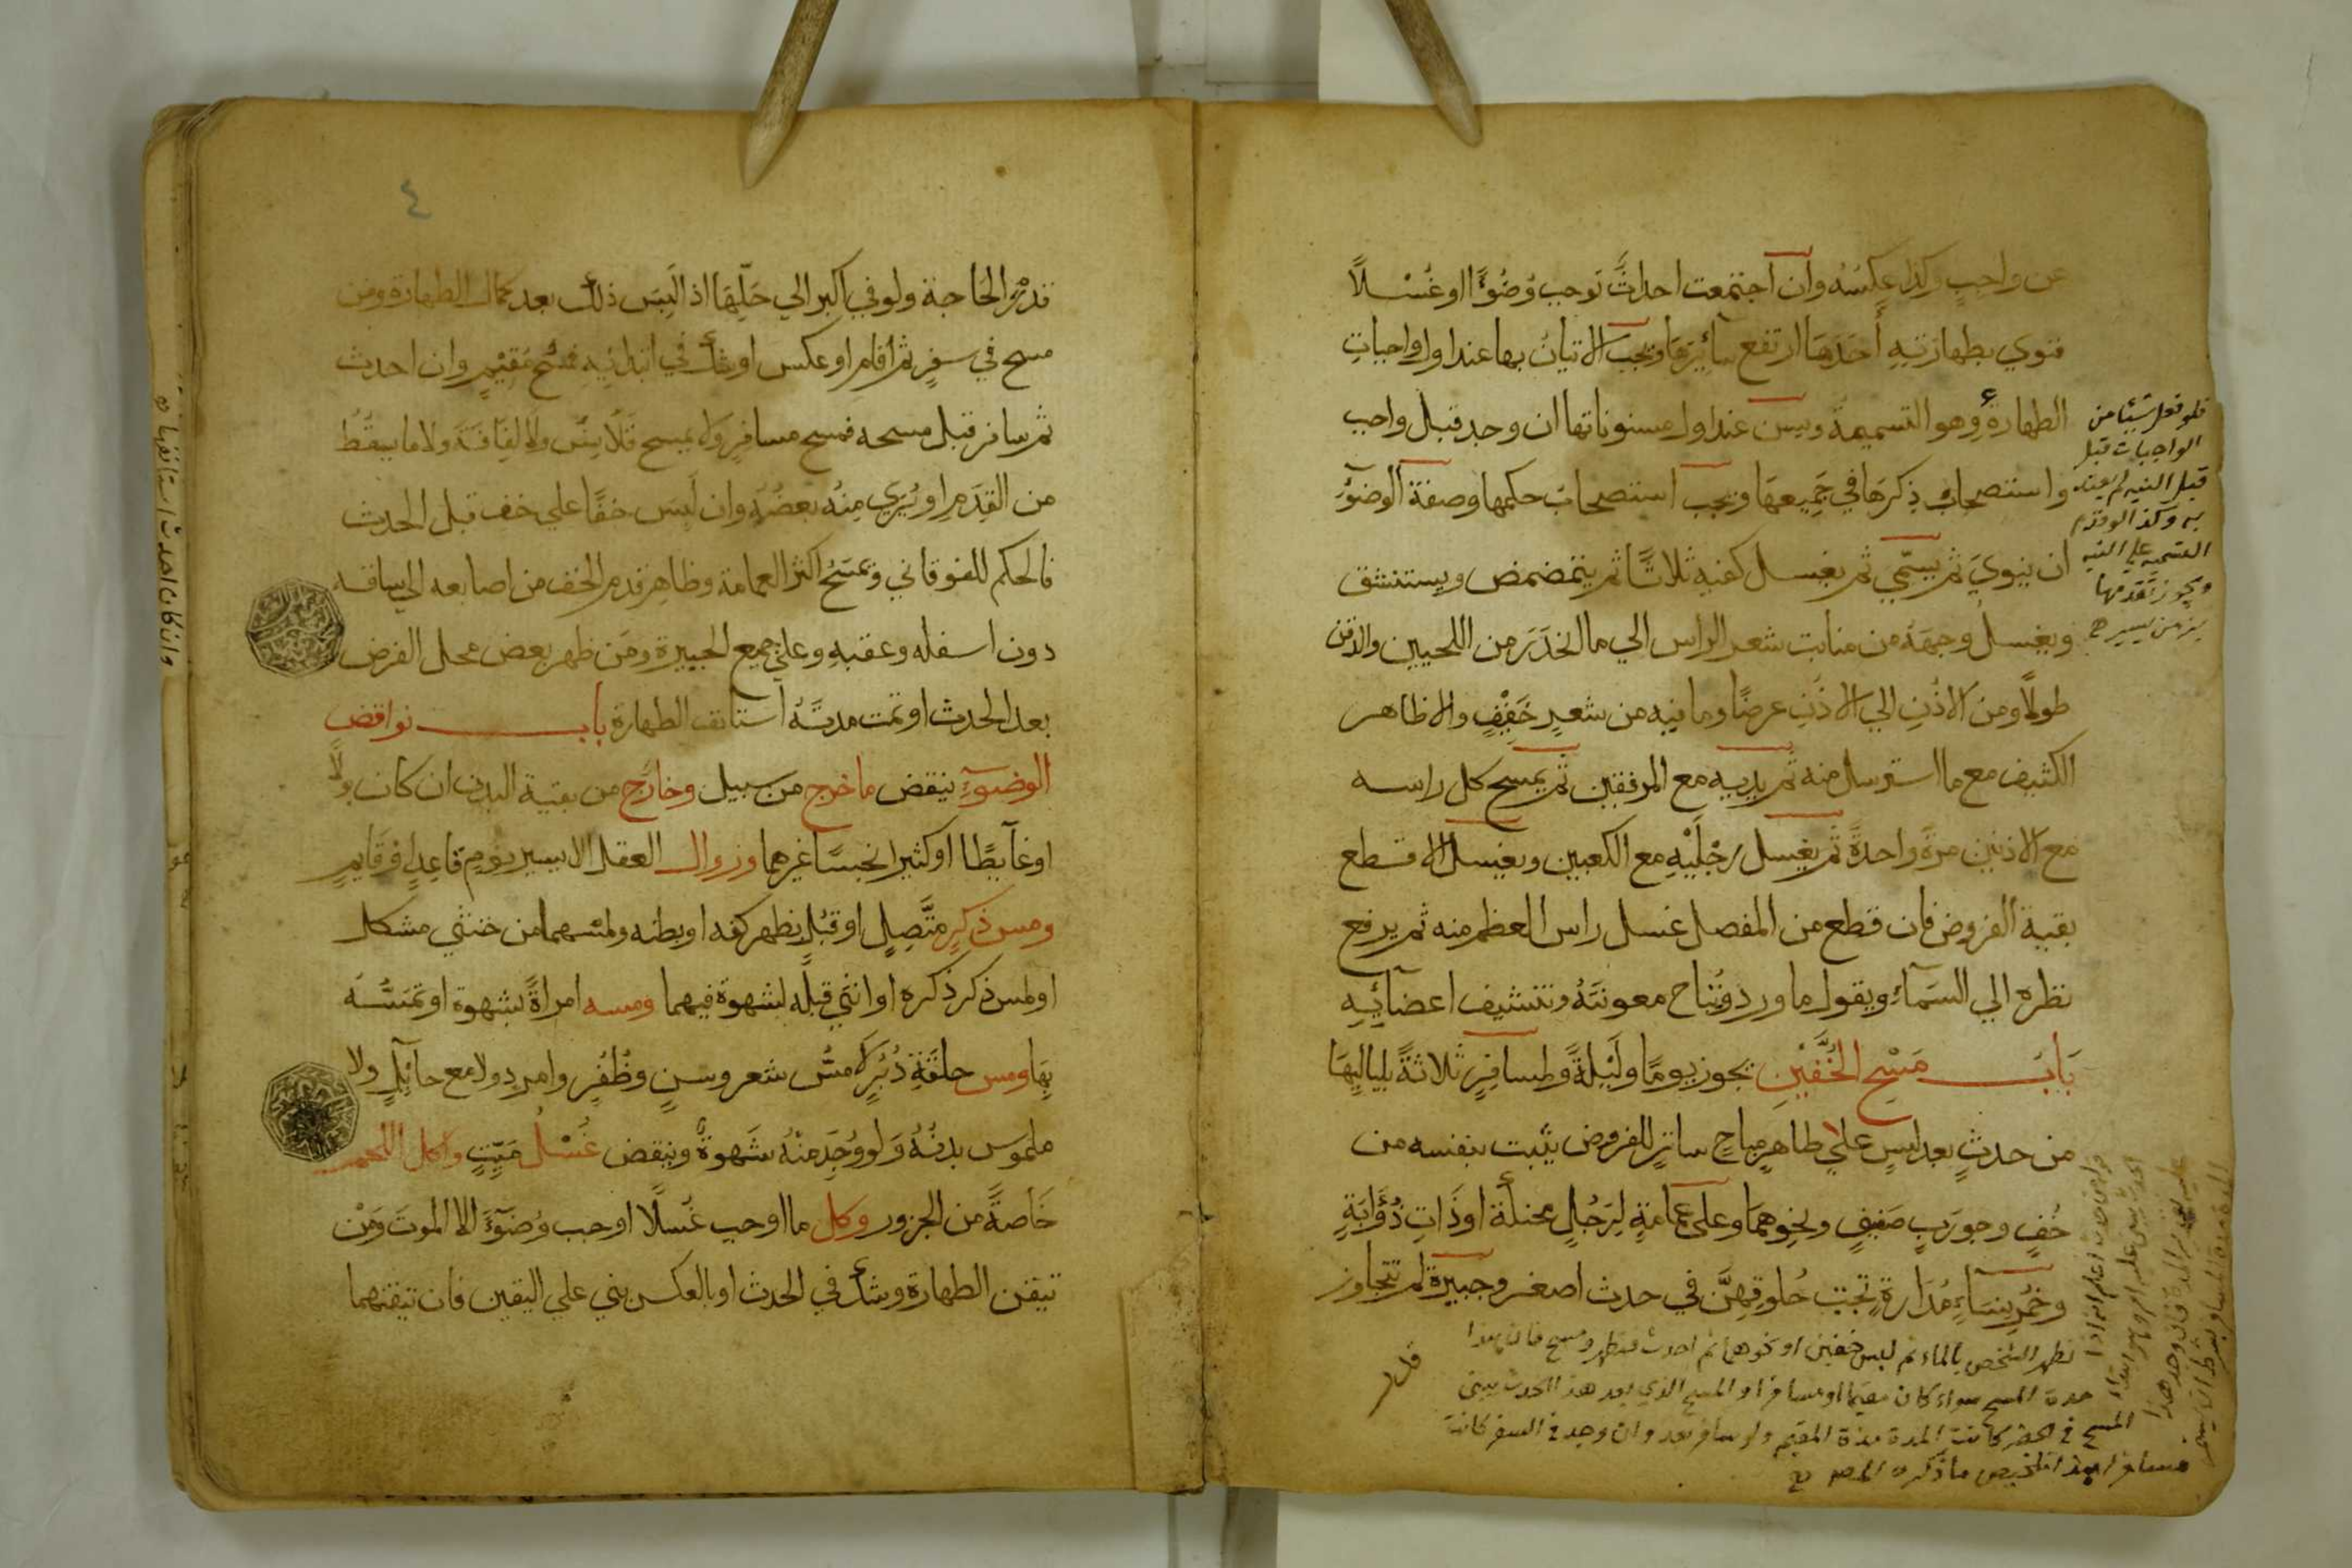 عن واجبٍ وكذا عكسُه وان اجتمعت احداثٌ توجب وُضُوءًا او غُسْلاً
فنوي بطهارتِهِ أَحَدَهَا ارتفع سائِرُهَا ويجب الاتيان بها عند اول واجباتِ
الطهارةِ وهو التسمية ويسن عند اول مسنوناتها ان وجد قبل واجب
واستصحاب ذِكرهَا في جَمِيعهَا ويجب استصحاب حكمها وصفة الوضوءِ
ان ينويَ ثم يسمّي ثم يغسل كفيه ثلاثًا ثم يتمضمض ويستنشق
ويغسل وجهَهُ من منابت شعر الراس الي ما انحَدَرَ من اللحيين والذقن
طولًا ومن الاذُنِ الي الاذُنِ عرضًا وما فيه من شعرٍ خَفِيفٍ والظاهر
الكثيف مع ما استرسل منه ثم يديه مع المرفقين ثم يمسح كل راسه
مع الاذنين مرةً واحدةً ثم يغسل رِجْلَيْهِ مع الكعبين ويغسل الاقطع
بقية المفروض فان قطع من المفصل غسل راس العظم منه ثم يرفع
نظره الي السَمآءِ ويقول ما ورد وتُباح معونتَهُ وتنشيف اعضآئِهِ
بَابُ مَسْحِ الخُفَّيْنِ يجوز يومًا ولَيْلةً ولمسافرٍ ثلاثةً بلياليهَا
من حدثٍ بعد لبسٍ علي طاهرٍ مباحٍ ساترٍ للمفروض يثبت بنفسه من
خُفٍ وجورَبٍ صَفِيقٍ ونحوِهمَا وعلى عمامةٍ لِرَجُلٍ محنكةٍ او ذَاتِ ذُؤَابَةٍ
وخُمُرِ نِسَآءٍ مُدَارةٍ تحت حُلوقِهِنَّ في حدث اصغر وجبيرةٍ لم تتجاوز
قدر
فلو فعل شيئا من
الواجبات قبل
قبل النيه لم يعتد
به وكذا لو قدم
التسميه علي النيه
ويجوز تقدمها
بزمن يسير
تطهر الشخص بالماء ثم لبس خفين او نحوهما ثم احدث فتطهر ومسح فان هذا
مدة المسح سواء كان مقيما او مسافرا والمسح الذي بعد هذا الحدث
المسح في الحضر كانت المدة مدة المقيم ولو سافر بعد وان وجد في السفر كانت
مسافرا هذا تلخيص ما ذكره
٤
قدرَ الحاجة ولو في اكبر الي حَلِّهَا اذا لَبِسَ ذلك بعد كمال الطهارة ومن
مسح في سفرٍ ثم اقام او عكس او شك في ابتدائِهِ فمسْحُ مُقِيْمٍ وان احدث
ثم سافر قبل مسحه فمسح مسافرٍ ولا يمسح قَلَانِسَ ولا لِفَافَةً ولا ما يسقُطُ
من القَدَمِ او يُرَي مِنْهُ بعضُهُ وان لَبِسَ خفًا علي خف قبل الحدث
فالحكم للفوقاني ويمسَحُ اكثر العمامة وظاهر قدم الخف من اصابعه الي ساقه
دون اسفله وعقبهِ وعلي جميع الجبيرة ومَن ظهر بعض محل الفرض
بعد الحدث او تمت مدتَهُ استانف الطهارة باب نواقض
الوضوءِ ينقض ما خرج من سبيل وخارج من بقية البدن ان كان بولًا
او غآيطًا او كثيرا نجسًا غيرهما وزوال العقل الا يسير نومٍ قاعدٍ او قايمٍ
ومس ذكرٍ متَّصِلٍ او قُبُلٍ بظهر كفه او بطنه ولمسهما من خنثي مشكل
او لمس ذكر ذكره او انثي قبلَه لشهوة فيهما ومسه امراةً بشهوة او تَمسُّه
بِهَا ومس حلقةِ دُبُرٍ لا مسُّ شعر وسنٍ وظُفُرٍ وامردٍ ولا مع حآئِلٍ ولا
ملموس بدنُهُ ولو وُجِدَ مِنْهُ شَهوةٌ وينقض غُسْلُ مَيِّتٍ واكل اللحم
خَآصةً من الجزور وكل ما اوجب غُسلًا اوجب وُضوءًا الا الموتَ ومَنْ
تيقن الطهارة وشك في الحدث او بالعكس بني علي اليقين فان تيقنهما
وان كان احدث استانفها